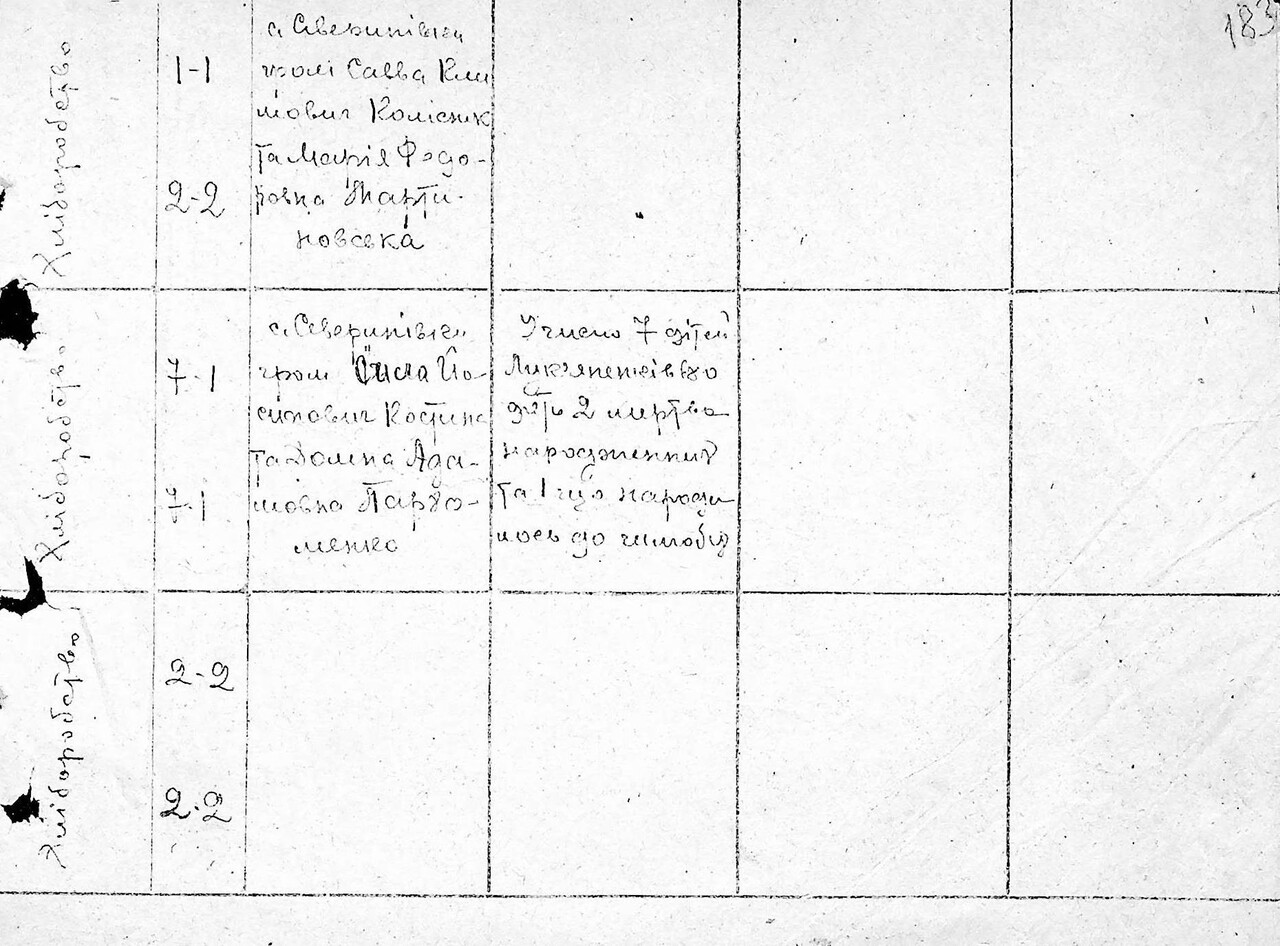 183
Хліборобство
1-1
2-2
с. Северинівки
гром Савва Кли
мович Колісник
та Марія Федо-
ровна Марти-
новська
Хліборобство
7-1
7-1
с. Северинівки
гром Йо-
сипович Костина
та Домна Ада-
мовна Пархо-
менко
У число 7 дітей
дять 2 мертво
народженних
та 1 що народи
лось до шлюбу
Хліборобство
2-2
2-2